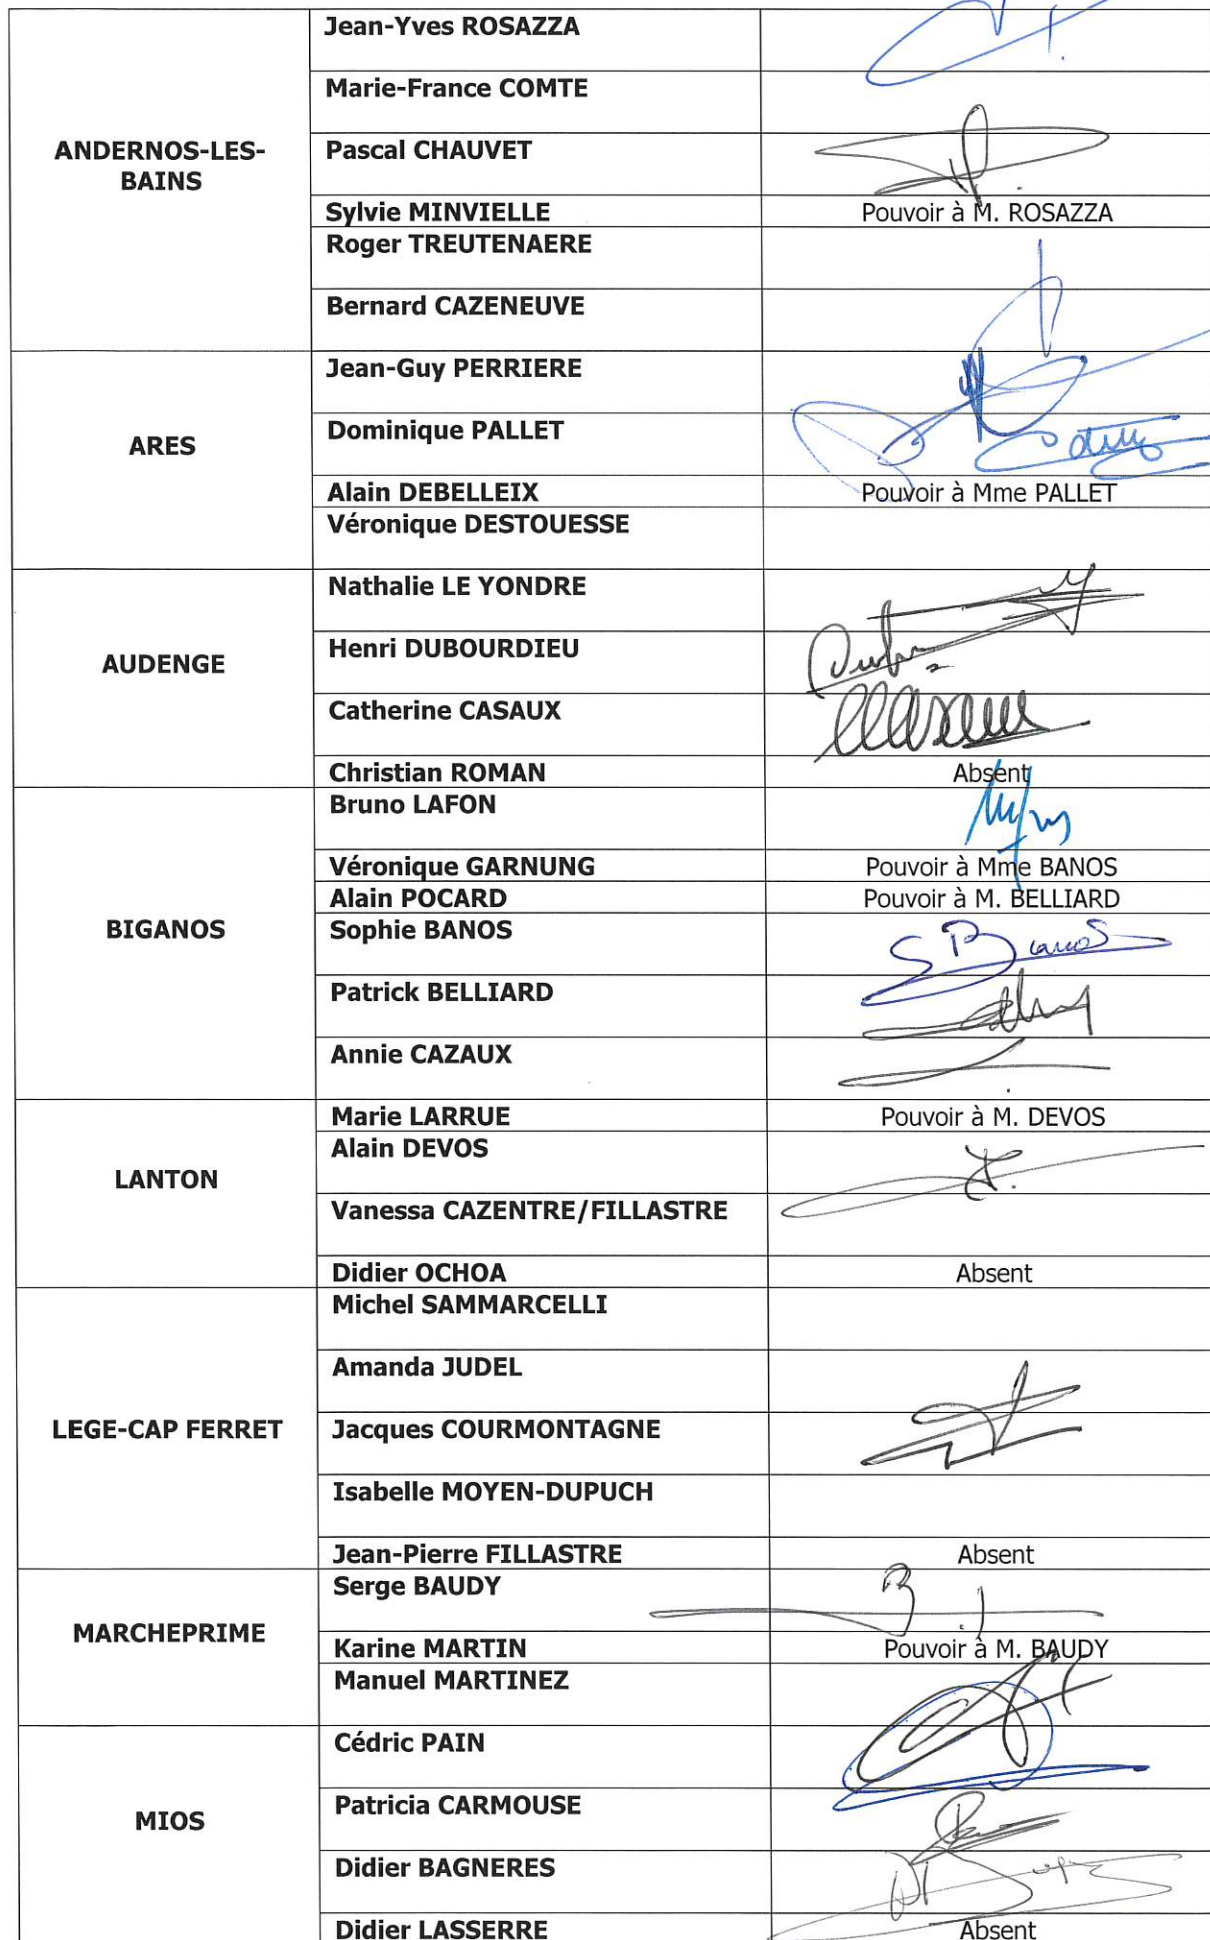 Jean-Yves ROSAZZA
Marie-France COMTE
ANDERNOS-LES-
BAINS
Pascal CHAUVET
Sylvie MINVIELLE Pouvoir à M. ROSAZZA
Roger TREUTENAERE
Bernard CAZENEUVE
Jean-Guy PERRIERE
ARES
Dominique PALLET
Alain DEBELLEIX Pouvoir à Mme PALLET
Véronique DESTOUESSE
Nathalie LE YONDRE
AUDENGE
Henri DUBOURDIEU
Catherine CASAUX
Christian ROMAN Absent
Bruno LAFON
Véronique GARNUNG Pouvoir à Mme BANOS
Alain POCARD Pouvoir à M. BELLIARD
BIGANOS
Sophie BANOS
S Banos
Patrick BELLIARD
Annie CAZAUX
Marie LARRUE Pouvoir à M. DEVOS
Alain DEVOS
LANTON
Vanessa CAZENTRE/FILLASTRE
Didier OCHOA Absent
Michel SAMMARCELLI
Amanda JUDEL
LEGE-CAP FERRET
Jacques COURMONTAGNE
Isabelle MOYEN-DUPUCH
Jean-Pierre FILLASTRE Absent
Serge BAUDY
MARCHEPRIME
Karine MARTIN Pouvoir à M. BAUDY
Manuel MARTINEZ
Cédric PAIN
MIOS
Patricia CARMOUSE
Didier BAGNERES
Didier LASSERRE Absent